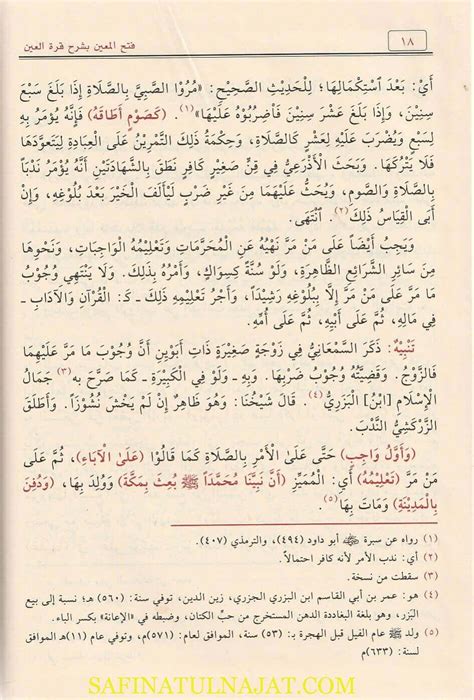 ١٨
فتح المعين بشرح قرة العين
أَيْ: بَعْدَ اسْتِكْمَالِهَا؛ لِلْحَدِيْثِ الصَّحِيْحِ: «مُرُوْا الصَّبِيَّ بِالصَّلَاةِ إِذَا بَلَغَ سَبْعَ
سِنِيْنَ، وَإِذَا بَلَغَ عَشْرَ سِنِيْنَ فَاضْرِبُوْهُ عَلَيْهَا»(١). (كَصَوْمٍ أَطَاقَهُ) فَإِنَّهُ يُؤْمَرُ بِهِ
لِسَبْعٍ وَيُضْرَبُ عَلَيْهِ لِعَشْرٍ كَالصَّلَاةِ، وَحِكْمَةُ ذَلِكَ التَّمْرِيْنُ عَلَى الْعِبَادَةِ لِيَتَعَوَّدَهَا
فَلَا يَتْرُكَهَا. وَبَحَثَ الْأَذْرَعِيُّ فِي قِنٍّ صَغِيْرٍ كَافِرٍ نَطَقَ بِالشَّهَادَتَيْنِ أَنَّهُ يُؤْمَرُ نَدْبًا
بِالصَّلَاةِ وَالصَّوْمِ، وَيُحَثُّ عَلَيْهِمَا مِنْ غَيْرِ ضَرْبٍ لِيَأْلَفَ الْخَيْرَ بَعْدَ بُلُوْغِهِ، وَإِنْ
أَبَى الْقِيَاسُ ذَلِكَ(٢). انْتَهَى.
وَيَجِبُ أَيْضًا عَلَى مَنْ مَرَّ نَهْيُهُ عَنِ الْمُحَرَّمَاتِ وَتَعْلِيْمُهُ الْوَاجِبَاتِ، وَنَحْوِهَا
مِنْ سَائِرِ الشَّرَائِعِ الظَّاهِرَةِ، وَلَوْ سُنَّةً كَسِوَاكٍ، وَأَمْرُهُ بِذَلِكَ. وَلَا يَنْتَهِي وُجُوْبُ
مَا مَرَّ عَلَى مَنْ مَرَّ إِلَّا بِبُلُوْغِهِ رَشِيْدًا، وَأَجْرُ تَعْلِيْمِهِ ذَلِكَ ـ كَـ: الْقُرْآنِ وَالْآدَابِ ـ
فِي مَالِهِ، ثُمَّ عَلَى أَبِيْهِ، ثُمَّ عَلَى أُمِّهِ.
تَنْبِيْهٌ: ذَكَرَ السَّمْعَانِيُّ فِي زَوْجَةٍ صَغِيْرَةٍ ذَاتِ أَبَوَيْنِ أَنَّ وُجُوْبَ مَا مَرَّ عَلَيْهِمَا
فَالزَّوْجِ. وَقَضِيَّتُهُ وُجُوْبُ ضَرْبِهَا. وَبِهِ ـ وَلَوْ فِي الْكَبِيْرَةِ ـ كَمَا صَرَّحَ بِهِ(٣) جَمَالُ
الْإِسْلَامِ [ابْنُ] الْبَزَرِيِّ(٤). قَالَ شَيْخُنَا: وَهُوَ ظَاهِرٌ إِنْ لَمْ يَخْشَ نُشُوْزًا. وَأَطْلَقَ
الزَّرْكَشِيُّ النَّدْبَ.
(وَأَوَّلُ وَاجِبٍ) حَتَّى عَلَى الْأَمْرِ بِالصَّلَاةِ كَمَا قَالُوْا (عَلَى الْآبَاءِ)، ثُمَّ عَلَى
مَنْ مَرَّ (تَعْلِيْمُهُ) أَي: الْمُمَيِّزِ (أَنَّ نَبِيَّنَا مُحَمَّدًا ﷺ بُعِثَ بِمَكَّةَ) وَوُلِدَ بِهَا، (وَدُفِنَ
بِالْمَدِيْنَةِ) وَمَاتَ بِهَا.(٥)
(١) رواه عن سبرة ﷺ أبو داود (٤٩٤)، والترمذي (٤٠٧).
(٢) أي: ندب الأمر لأنه كافر احتمالاً.
(٣) سقطت من نسخة.
(٤) هو: عمر بن أبي القاسم ابن البزري الجزري، زين الدين، توفي سنة: (٥٦٠) هـ؛ نسبة إلى بيع
البَزر، وهو بلغة البغاددة الدهن المستخرج من حبِّ الكتان، وضبطه في «الإعانة» بكسر الباء.
(٥) ولد ﷺ عام الفيل قبل الهجرة بـ: (٥٣) سنة، الموافق لعام: (٥٧١)م، وتوفي عام (١١)هـ الموافق
لسنة: (٦٣٣)م
SAFINATULNAJAT.COM